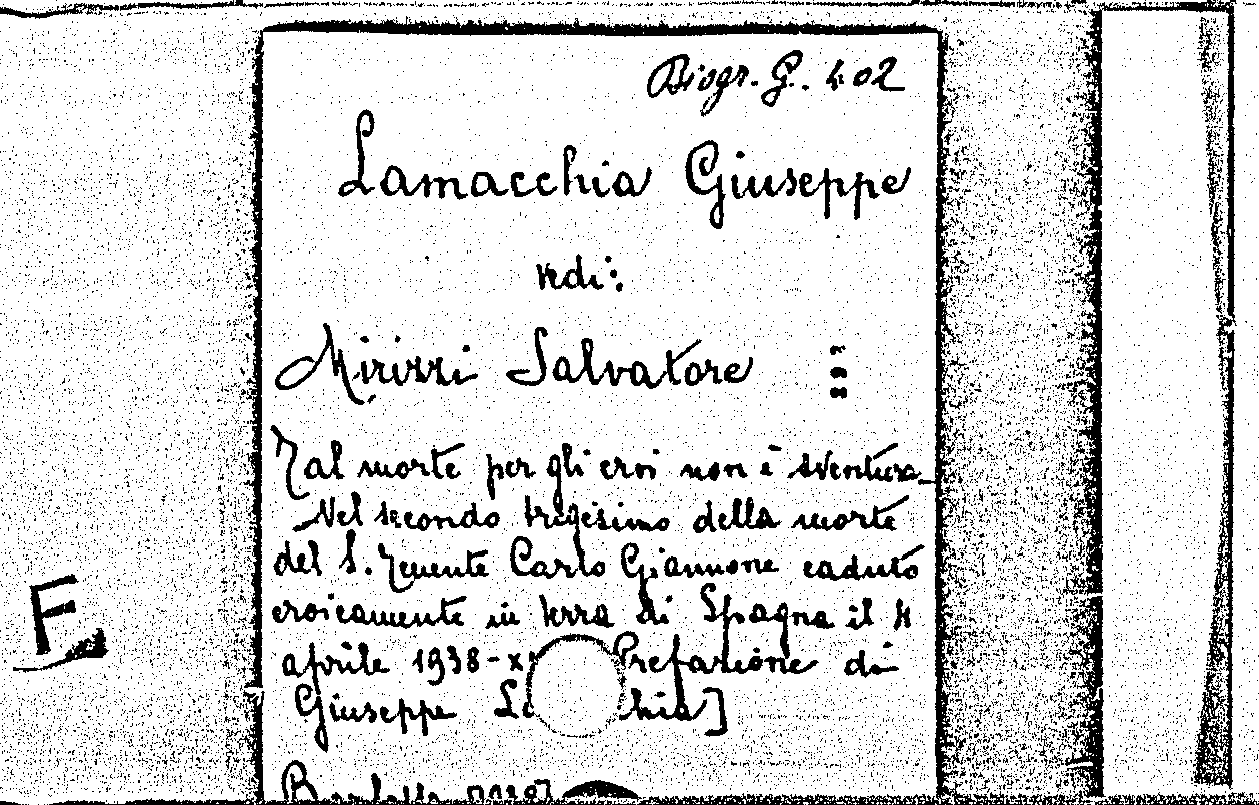 Biogr. G. 402
Lamacchia Giuseppe
vedi:
Mirizzi Salvatore
Tal morte per gli eroi non è sventura_
Nel secondo trigesimo della morte
del S. Tenente Carlo Giannone caduto
eroicamente in terra di Spagna il 4
aprile 1938-X Prefazione di
Giuseppe La chia]
F